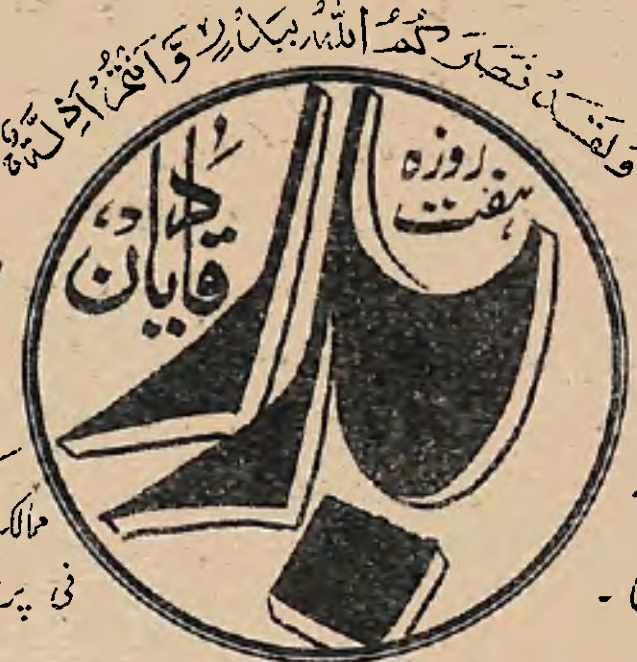 وَلَقَدْ نَصَرَكُمُ اللّٰهُ بِبَدْرٍ وَّاَنْتُمْ اَذِلَّةٌ
ہفت روزہ
بدر
قادیان
ممالک
فی پر